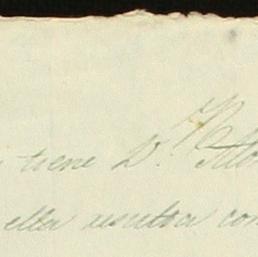 tiene D.
ella resulta con